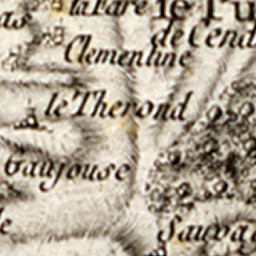 la Fare
de Cend
Clementine
le Therond
Vaujouse
Sauvag